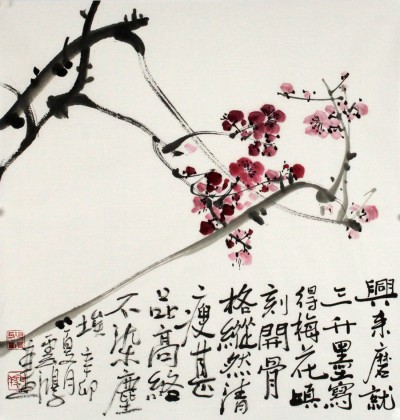 興来磨就
三升墨寫
得梅花頃
刻開骨
格縱然清
瘦甚
品高終
不染塵
埃 辛卯
夏月
雲